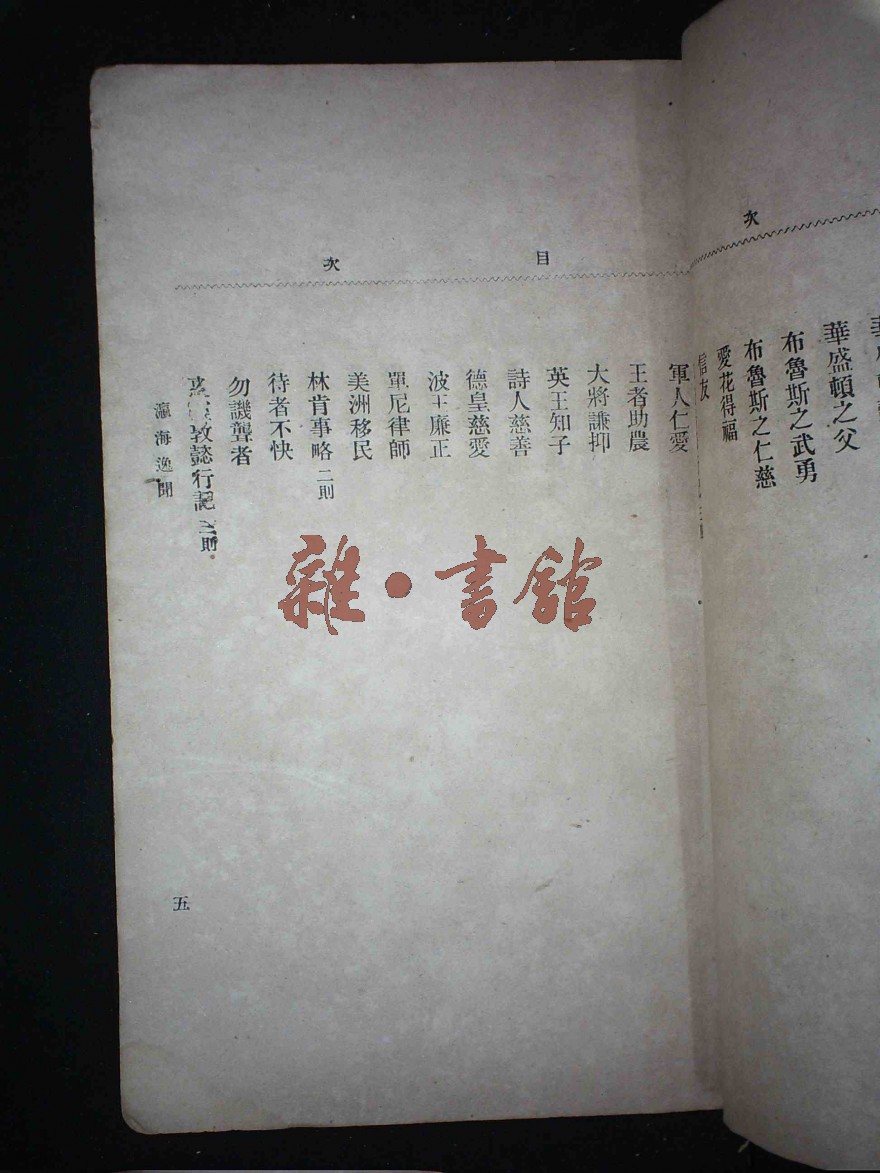 次
華盛頓之父
布魯斯之武勇
布魯斯之仁慈
愛花得福
信友
目次
軍人仁愛
王者助農
大將謙抑
英王知子
詩人慈善
德皇慈愛
波王廉正
單尼律師
美洲移民
林肯事略 二則
待者不快
勿譏聾者
敦懿行記 三則
瀛海逸聞
五
雜·書館